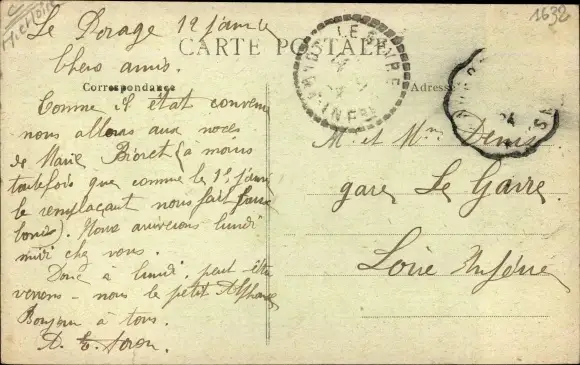 1632
Le Porage 12 janvier
CARTE POSTALE
LE GAVRE
Chers amis.
Correspondance
Adresse
Comme il était convenu
nous allons aux noces
de Marie Bioret (à moins
toutefois que comme le 1er janv
le remplaçant nous fait faux
bons). Nous arriverons lundi
midi chez vous.
Donc à lundi, peut être
verrons-nous le petit Alphonse
Bonjour à tous.
M. et Mme Denis
gare Le Gavre
Loire Inférre
24